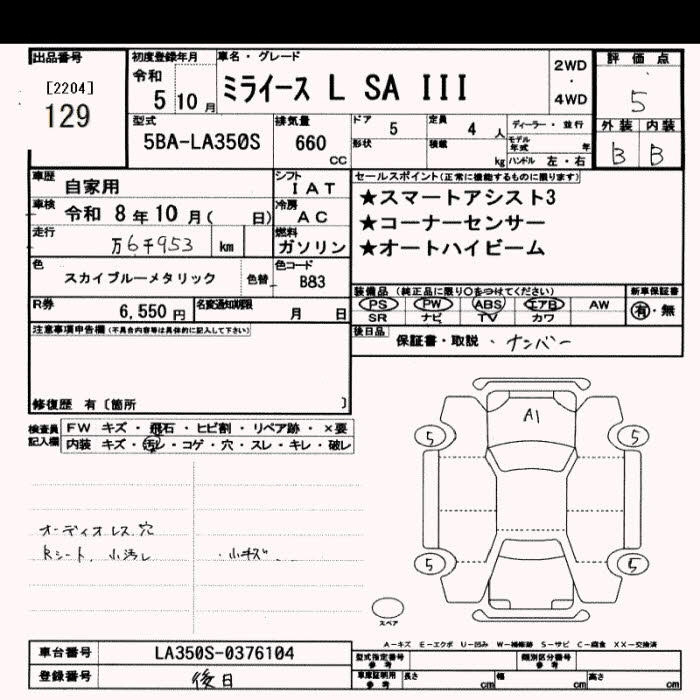 出品番号
[2204]
129
初度登録年月
令和
5 10 月
車名・グレード
ミライース L SA III
2WD
・
4WD
評価点
5
外装 内装
B B
型式
5BA-LA350S
排気量
660
CC
ドア 5
形状
定員 4 人
積載 kg
ディーラー・並行
モデル年式 年
ハンドル 左・右
車歴 自家用
車検 令和 8 年 10 月( 日)
走行 万6千953 km
シフト
I A T
冷房
A C
燃料
ガソリン
色 スカイブルーメタリック 色替
色コード
B83
R券 6,550 円
名変通知期限 月 日
セールスポイント(正常に機能するものに限ります)
★スマートアシスト3
★コーナーセンサー
★オートハイビーム
装備品(純正品に限り○をつけてください)
PS PW ABS エアB AW
SR ナビ TV カワ
新車保証書
有・無
後日品
保証書・取説 ・ナンバー
注意事項申告欄(不具合内容等は具体的に記入して下さい)
修復歴 有〔箇所 〕
検査員
記入欄
FW キズ・飛石・ヒビ割・リペア跡・×要
内装 キズ・汚レ・コゲ・穴・スレ・キレ・破レ
オーディオレス穴
Rシート、小汚レ
・小キズ
A1
5 5
5 5
スペア
A−キズ E−エクボ U−凹み W−補修跡 S−サビ C−腐食 XX−交換済
車台番号 LA350S-0376104
登録番号 後日
型式指定番号
参考
類別区分番号
参考
車庫証明用
参考
長さ cm
幅 cm
高さ cm